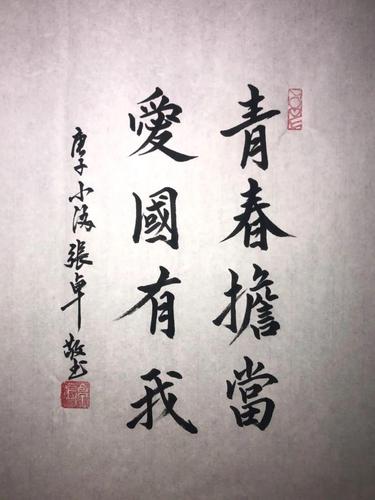 青春擔當
愛國有我
庚子小满張卓敬书